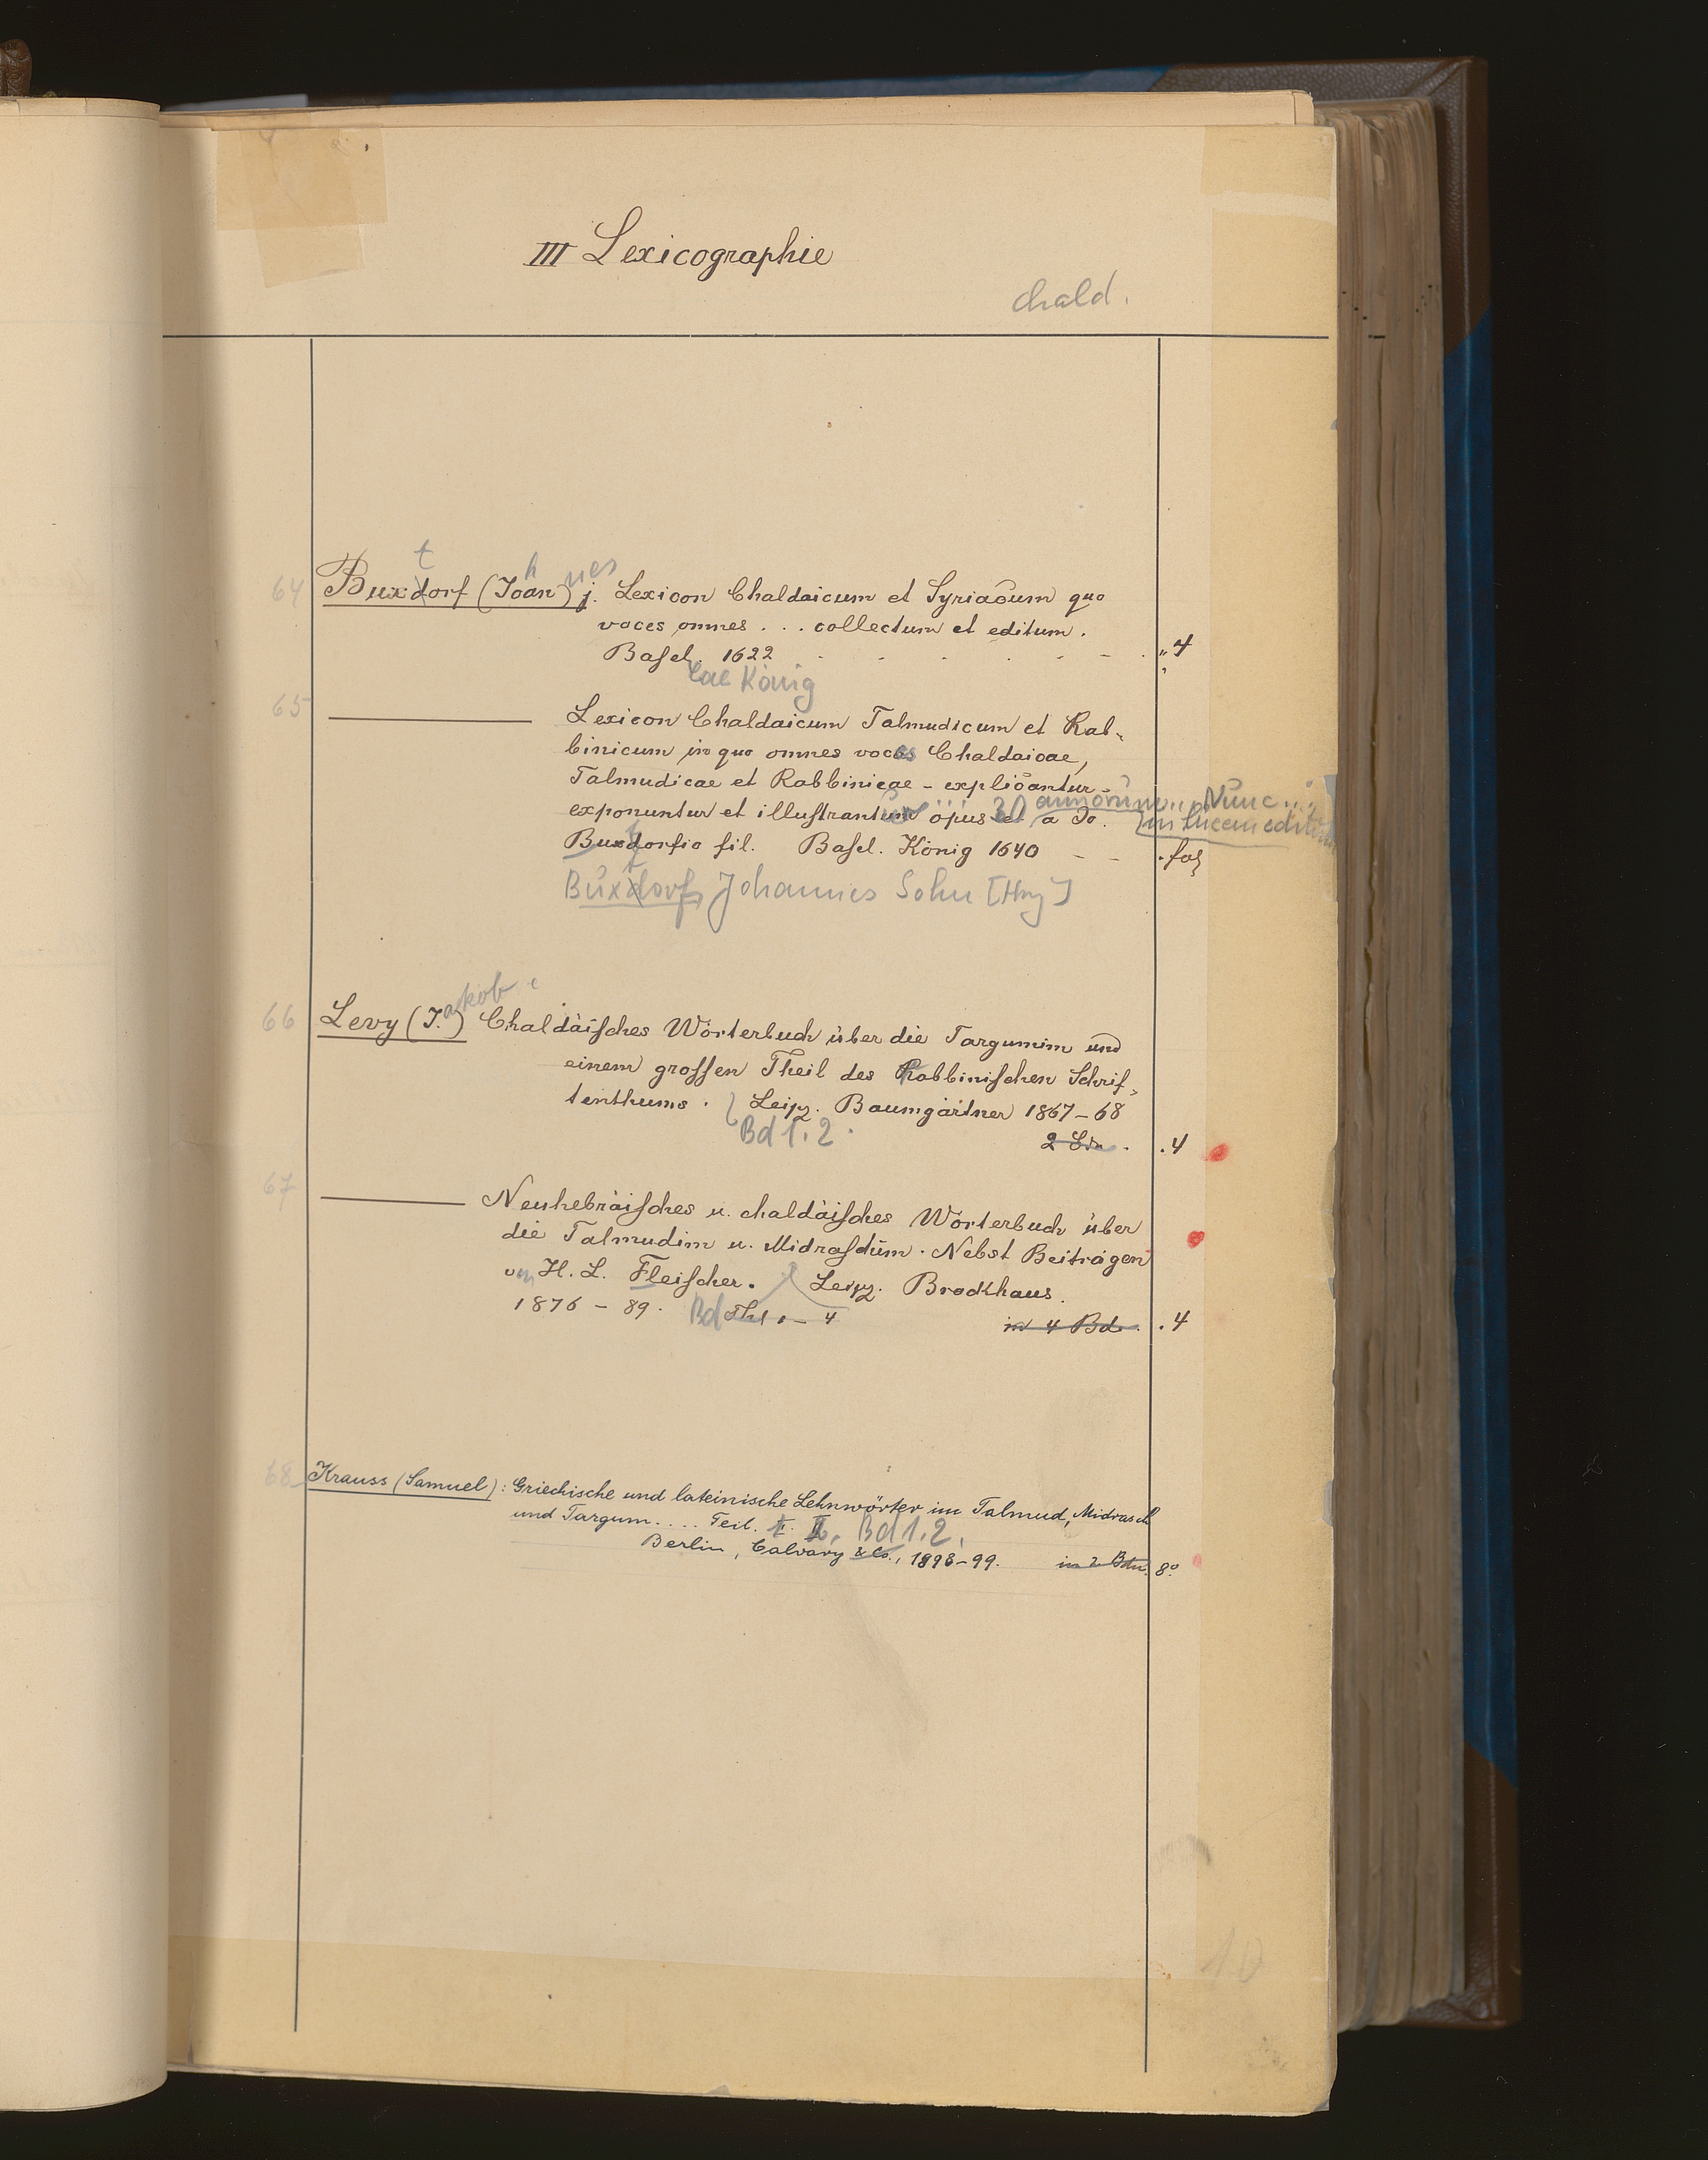 III Lexicographie
chald.
t h nes
64 Buxdorf (Joan) j. Lexicon Chaldaicum et Syriacum quo
voces omnes . . . collectum et editum.
Basel. 1622 „ 4
König
65 Lexicon Chaldaicum Talmudicum et Rab-
binicum in quo omnes voces Chaldaicae,
Talmudicae et Rabbinicae - explicantur -
exponuntur et illustrantur opus 30 annorum... Nunc...
a Jo. in lucem editum
Buxdorfio fil. Basel. König 1640 . fol
Buxtorf, Johannes Sohn [Hrg]
66 Levy (Jakob) Chaldäisches Wörterbuch über die Targumim und
einem grossen Theil des Rabbinischen Schrif-
tenthums. Leipz. Baumgärtner 1867-68
Bd 1.2. 2 Bde. . 4
67 Neuhebräisches u. chaldäisches Wörterbuch über
die Talmudim u. Midraschim. Nebst Beiträgen
von H. L. Fleischer. Leipz. Brockhaus.
1876 - 89. Bd Thl 1 - 4 in 4 Bd. . 4
68 Krauss (Samuel): Griechische und lateinische Lehnwörter im Talmud, Midrasch
und Targum.... Teil. I. II. Bd 1.2.
Berlin, Calvary & Co., 1898-99. in 2 Bdn. 8°
10